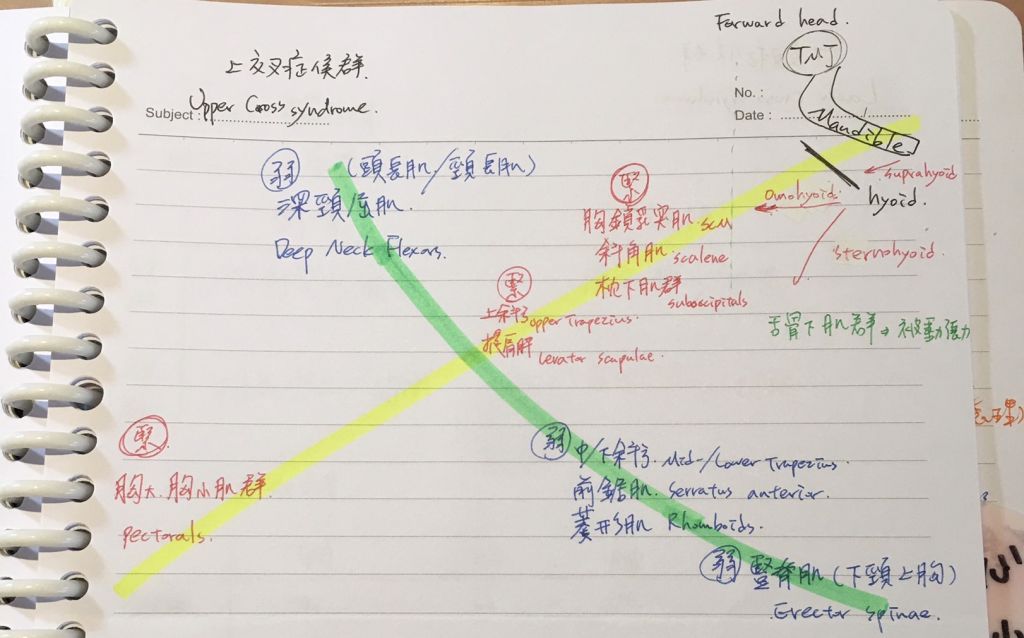 Forward head.
TMJ
上交叉症侯群.
Subject : Upper Cross syndrome.
No. :
Date :
Mandible
弱 (頭長肌/頸長肌)
深頸屈肌.
Deep Neck Flexors.
緊
胸鎖乳突肌. SCM
斜角肌. scalene
枕下肌群
suboccipitals
suprahyoid
hyoid.
Omohyoid.
sternohyoid.
舌骨下肌群→被動張力
緊
上斜方 upper Trapezius.
提肩胛 Levator scapulae.
緊
胸大. 胸小肌群.
pectorals.
弱 中/下斜方. Mid-/Lower Trapezius.
前鋸肌. Serratus anterior.
菱形肌 Rhomboids.
弱 豎脊肌 (下頸上胸)
Erector spinae.